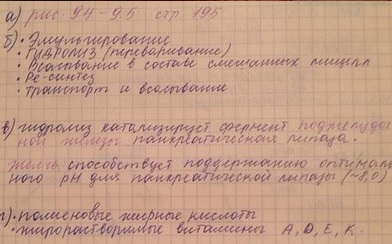 а) рис 9.4 - 9.5 стр. 195
б) • Эмульгирование
• ГИДРОЛИЗ (переваривание)
• Всасывание в составе смешанных мицелл
• Ре-синтез
• транспорт и всасывание
в) гидролиз катализирует фермент поджелудоч
ной железы панкреатическая липаза.
Желчь способствует поддержанию оптималь
ного pH для панкреатической липазы (~8,0)
г) • полиеновые жирные кислоты
• жирорастворимые витамины A, D, E, K.